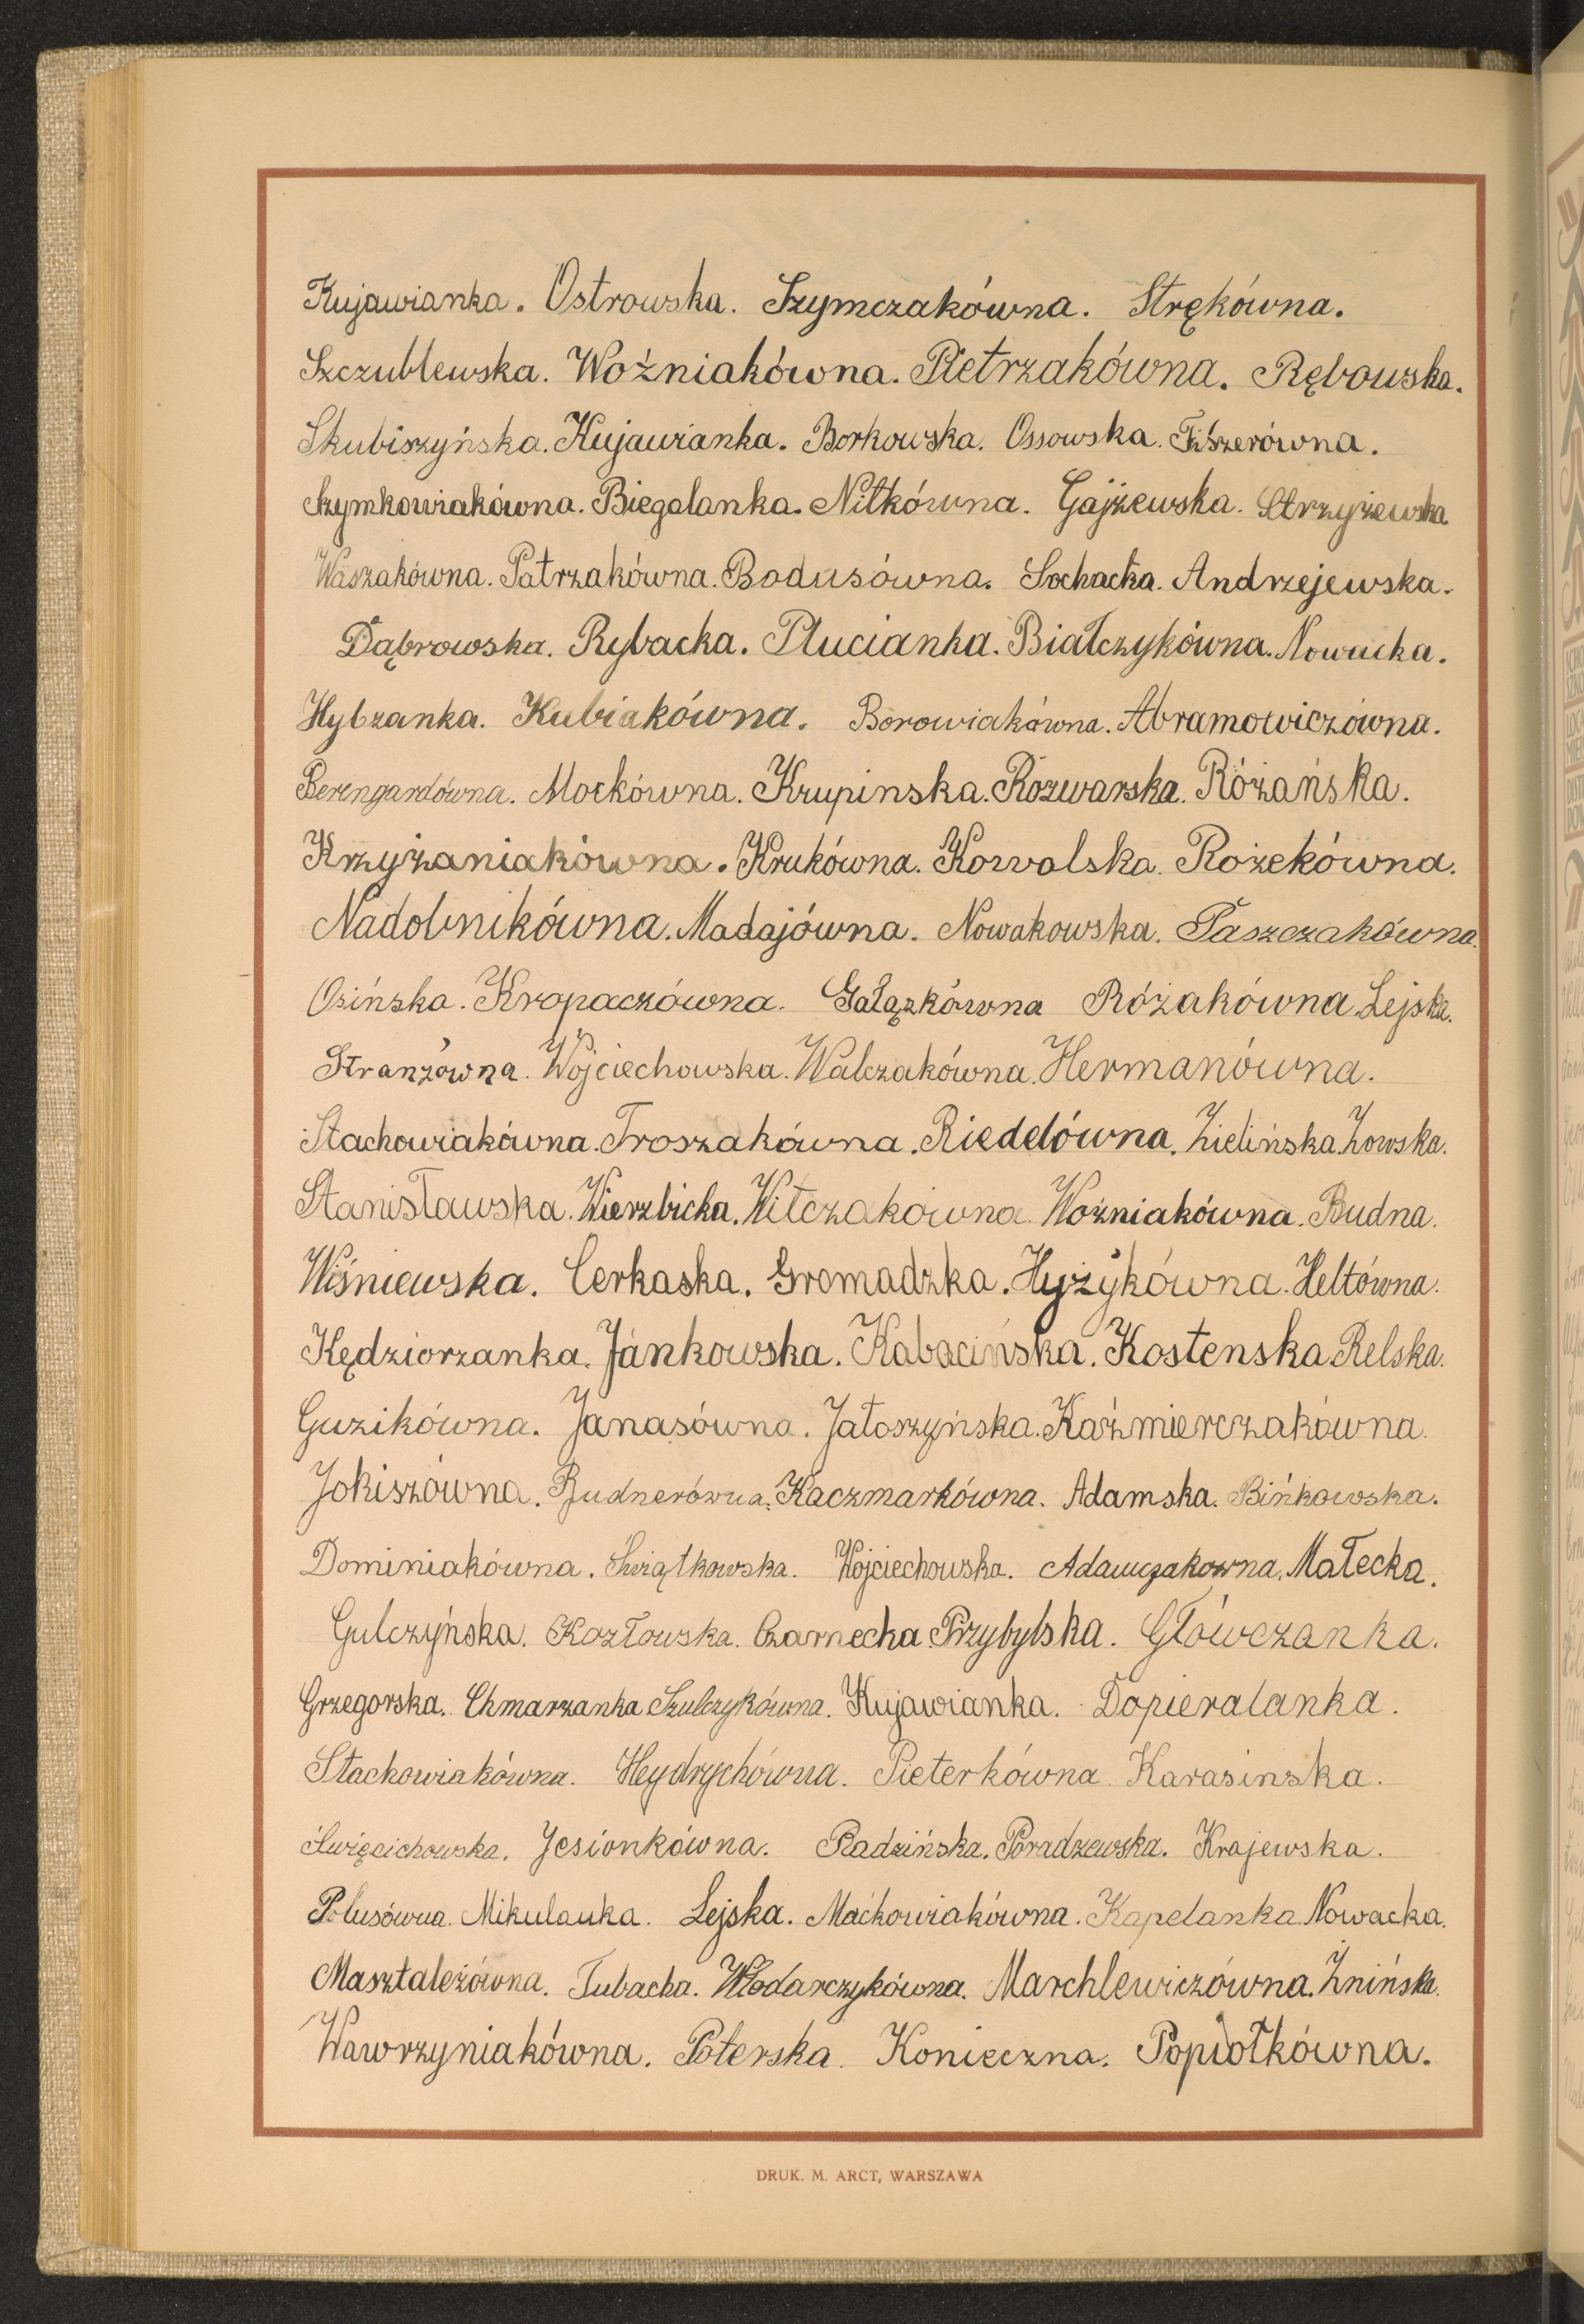 Kujawianka. Ostrowska. Szymczakówna. Strękówna.
Szczublewska. Woźniakówna. Pietrzakówna. Rębowska.
Skubiszyńska. Kujawianka. Borkowska. Ossowska. Fiszerówna.
Szymkowiakówna. Biegalanka. Nitkówna. Gajżewska. Strzyżewska
Waszakówna. Patrzakówna. Bodusówna. Sochacka. Andrzejewska.
Dąbrowska. Rybacka. Plucianka. Białczykówna. Nowacka.
Hybzanka. Kubiakówna. Borowiakówna. Abramowiczówna.
Berengardówna. Mockówna. Krupinska. Rozwarska. Różańska.
Krzyżaniakówna. Krukówna. Kowalska. Rożekówna.
Nadolnikówna. Madajówna. Nowakowska. Paszczakówna.
Osińska. Kropaczówna. Gałązkówna Różakówna. Lejska.
Stranzówna. Wojciechowska. Walczakówna. Hermanówna.
Stachowiakówna. Troszakówna. Riedelówna. Zielińska. Zowska.
Stanisławska. Wierzbicka. Witczakówna. Woźniakówna. Budna.
Wiśniewska. Cerkaska. Gromadzka. Hyżykówna. Heltówna.
Kędziorzanka. Jankowska. Kabacińska. Kostenska Relska.
Guzikówna. Janasówna. Jatoszyńska. Kaźmierczakówna.
Jokiszówna. Budnerówna. Kaczmarkówna. Adamska. Bińkowska.
Dominiakówna. Świątkowska. Wojciechowska. Adamczakowna. Małecka.
Gulczyńska. Kozłowska. Czarnecka Przybylska. Główczanka.
Grzegorska. Chmarzanka Szulczykówna. Kujawianka. Dopieralanka.
Stachowiakówna. Heydrychówna. Pieterkówna. Karasinska.
Święcichowska. Jesionkówna. Radzińska. Poradzewska. Krajewska.
Polusówna. Mikulanka. Lejska. Maćkowiakówna. Kapelanka. Nowacka.
Masztależówna. Tubacka. Włodarczykówna. Marchlewiczówna. Żnińska.
Wawrzyniakówna. Poterska. Konieczna. Popiołkówna.
DRUK. M. ARCT, WARSZAWA